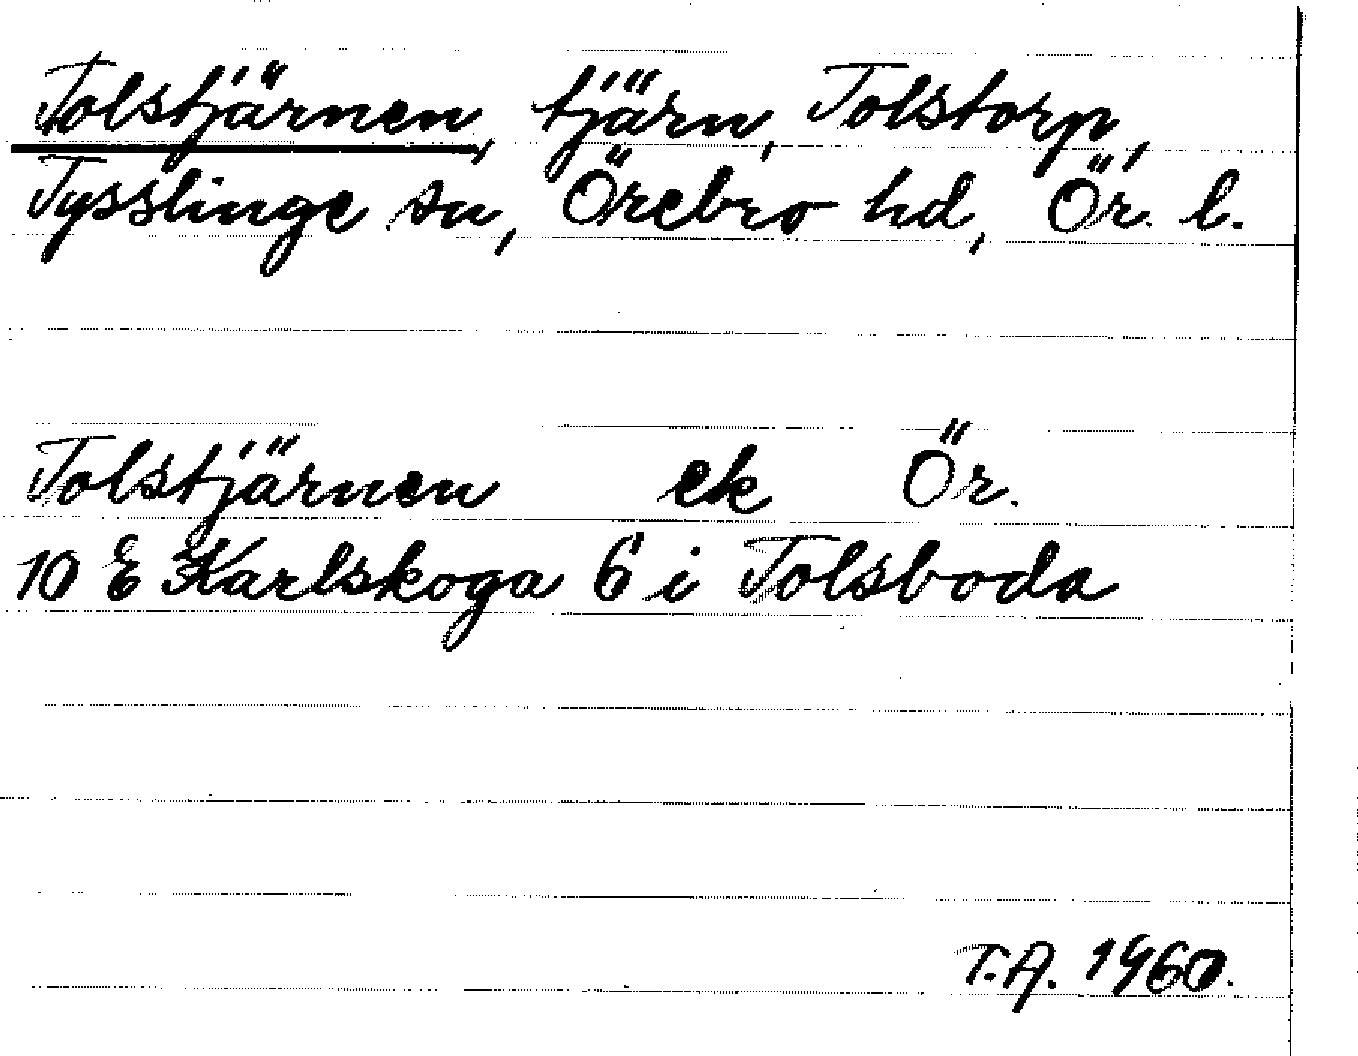 Tolstjärnen, tjärn, Tolstorp,
Tysslinge sn, Örebro hd, Ör. l.
Tolstjärnen ek Ör.
10 E Karlskoga 6 i Tolsboda
T.A. 1960.